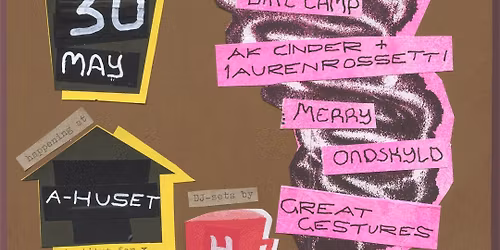 30
MAY
AK CINDER +
1AURENROSSETTI
MERRY
ONDSKYLD
GREAT
GESTURES
happening at
A-HUSET
DJ-sets by
H